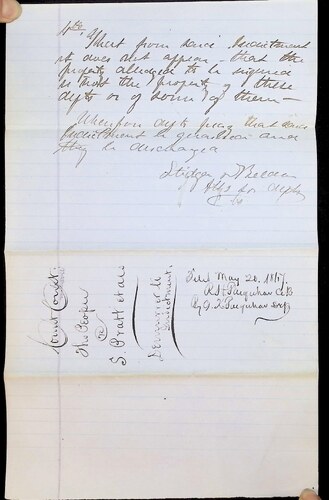 4th
That from said Indictment
it does not appear that the
property alledged to be injured
is not the property of these
defts or of some of them —
Wherefore defts pray that said
Indictment be quashed and
they be discharged
Attys for defts
County Court
The People
vs
S. Pratt et als
Demurrer to
Indictment.
Filed May 20. 1857
R. H. Farquhar Clk
By J. K. Farquhar Depty